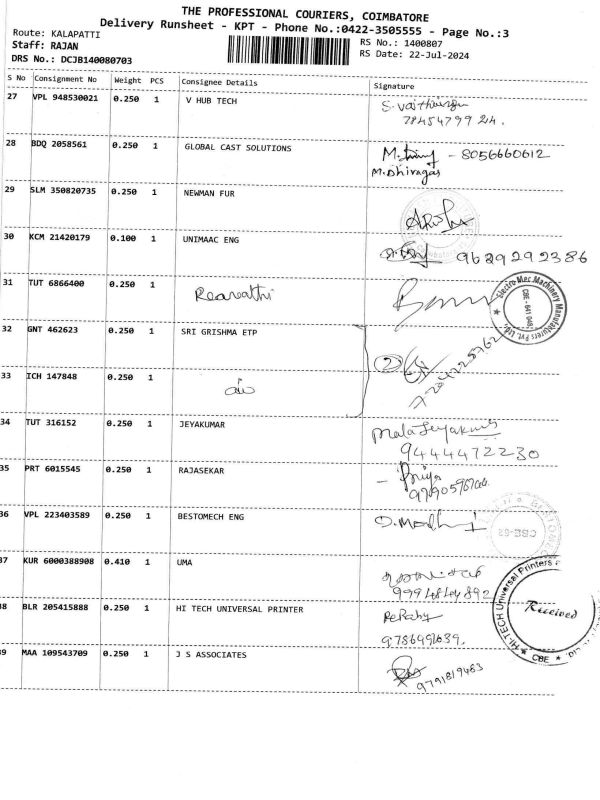 THE PROFESSIONAL COURIERS, COIMBATORE
Delivery Runsheet - KPT - Phone No.:0422-3505555 - Page No.:3
Route: KALAPATTI
Staff: RAJAN
DRS No.: DCJB140080703
RS No.: 1400807
RS Date: 22-Jul-2024
S No Consignment No Weight PCS Consignee Details Signature
27 VPL 948530021 0.250 1 V HUB TECH
28 BDQ 2058561 0.250 1 GLOBAL CAST SOLUTIONS - 8056660612
M.Dhivagar
29 SLM 350820735 0.250 1 NEWMAN FUR
30 KCM 21420179 0.100 1 UNIMAAC ENG 9629292386
31 TUT 6866400 0.250 1
Electro Mec Machinery Manufacturers Pvt. Ltd. CBE - 641 048
32 GNT 462623 0.250 1 SRI GRISHMA ETP
33 ICH 147848 0.250 1
34 TUT 316152 0.250 1 JEYAKUMAR Mala Jeyakumar
9444472230
35 PRT 6015545 0.250 1 RAJASEKAR - Priya
36 VPL 223403589 0.250 1 BESTOMECH ENG
CBE-62
37 KUR 6000388908 0.410 1 UMA
38 BLR 205415888 0.250 1 HI TECH UNIVERSAL PRINTER
HI-TECH Universal Printers CBE
Received
39 MAA 109543709 0.250 1 J S ASSOCIATES 9791819463